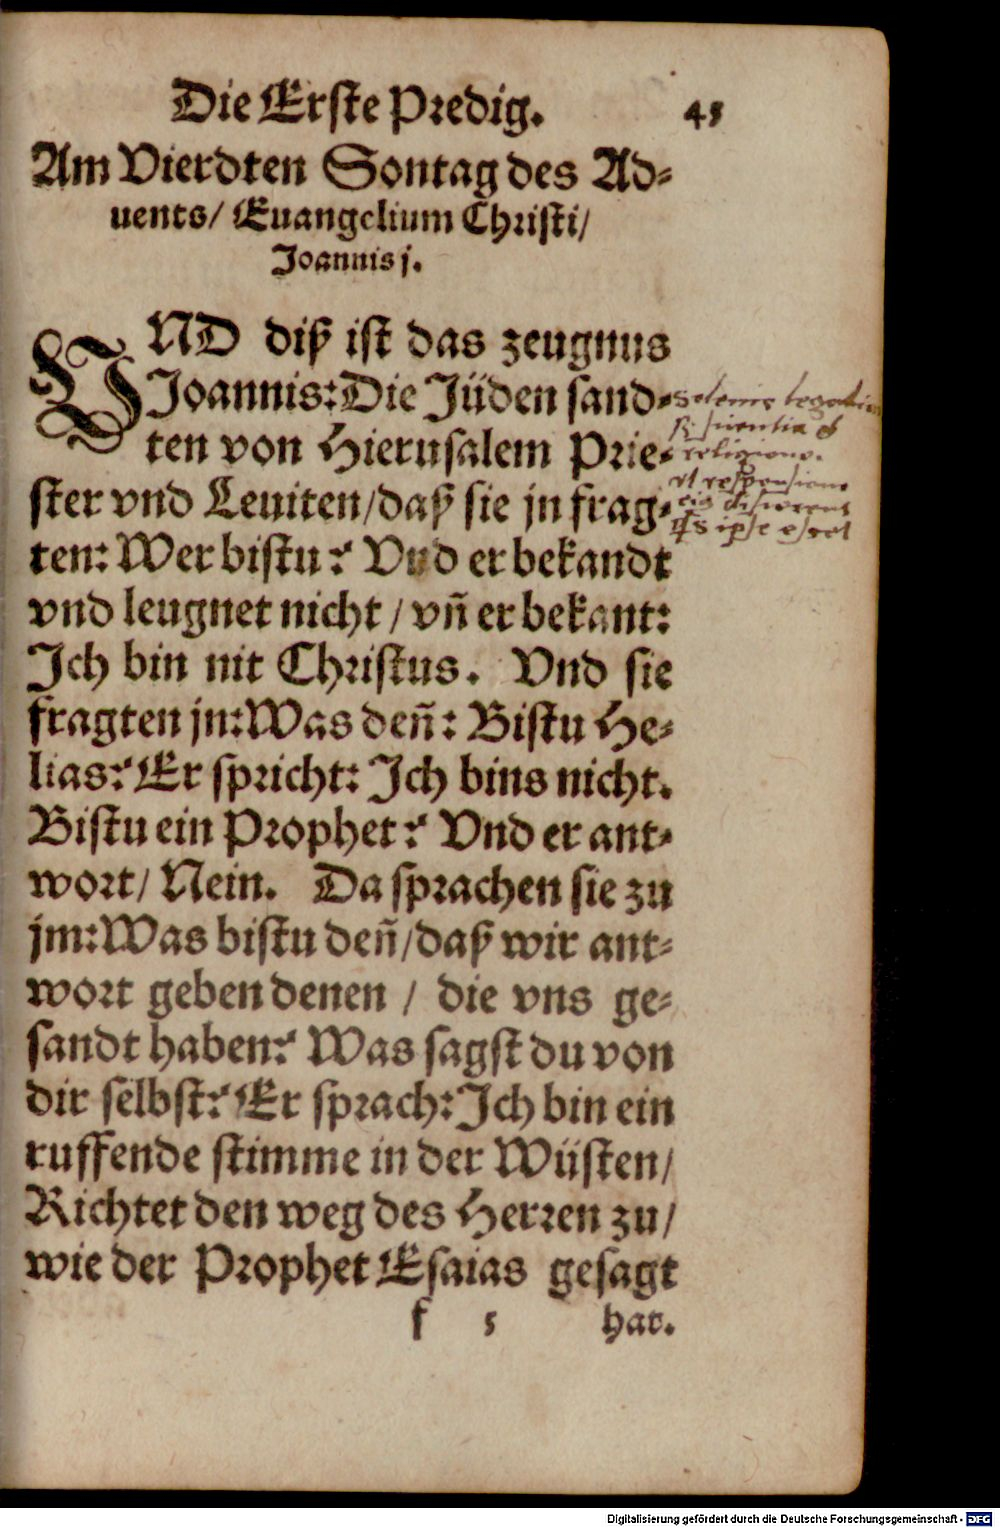 Die Erſte Predig. 45
Am Vierdten Sontag des Ad⸗
uents/ Euangelium Chriſti/
Joannis j.
VND diß iſt das zeugnus
Joannis: Die Jüden ſand⸗
ten von Hieruſalem Prie⸗
ſter vnd Leuiten/ daß ſie jn frag⸗
ten: Wer biſtu? Vnd er bekandt
vnd leugnet nicht / vñ er bekant:
Ich bin nit Chriſtus. Vnd ſie
fragten jn: Was deñ: Biſtu He⸗
lias? Er ſpricht: Ich bins nicht.
Biſtu ein Prophet? Vnd er ant⸗
wort/ Nein. Da ſprachen ſie zu
jm: Was biſtu deñ/ daß wir ant⸗
wort geben denen / die vns ge⸗
ſandt haben? Was ſagſt du von
dir ſelbſt? Er ſprach: Ich bin ein
ruffende ſtimme in der Wüſten/
Richtet den weg des Herren zu/
wie der Prophet Eſaias geſagt
f 5 hat.
religione.
ipſe eſſet
Digitalisierung gefördert durch die Deutsche Forschungsgemeinschaft - DFG